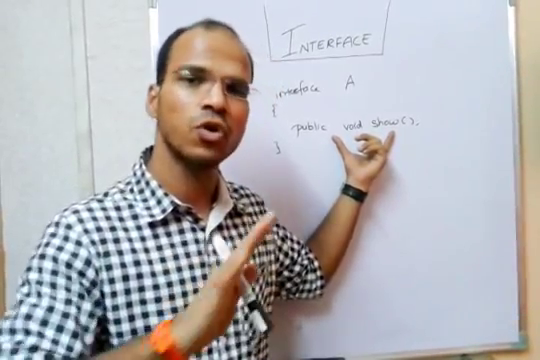 INTERFACE
interface A
{
public void show();
}